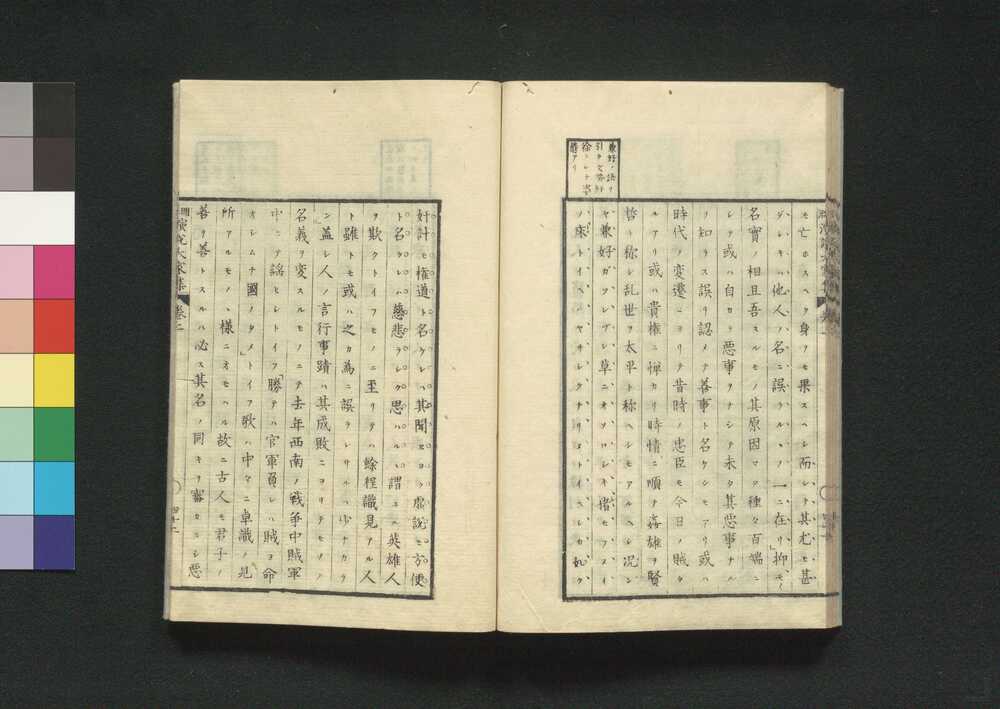 兼好ノ語ヲ
モ亡ホスヘク身ヲモ果スヘシ而シテ其尤モ甚
ダシキハ他人ノ名ニ誤ラルヽノ一ニ在リ抑モ
名實ノ相且吾スルモノ其原因マタ種々百端ニ
シテ或ハ自カラ悪事ヲナシテ未タ其悪事ナル
ヲ知ラス誤リ認メテ善事ト名ケシモアリ或ハ
時代ノ変遷ニヨリテ昔時ノ忠臣モ今日ノ賊タ
ルアリ或ハ貴権ニ憚カリ時情ニ順テ姦雄ヲ賢
哲ト称シ乱世ヲ太平ト称ヘシモアルヘシ况ン
ヤ兼好ガツレヅレ草ニオソロシキ
ノ床トイフヘヤサシクナリヌトイヘルカ如ク
奸計モ権道ト名クレハ其聞ヨロシク虚説モ方便
ト名クレハ慈悲ラシク思ハルヽ謂ユル英雄人
ヲ欺クトイフモノニ至リテハ餘程識見アル人
ト雖トモ或ハ之カ為ニ誤ラレサルハ少ナカラ
ン盖シ人ノ言行事蹟ハ其成敗ニヨリテモノヽ
名義ヲ変スルモノニテ去年西南ノ戦争中賊軍
中ニテ謡ヒシトイフ「勝テハ官軍負レハ賊ヨ命
オシムナ國ノタメ」トイフ歌ハ中々ニ卓識ノ見
所アルモノヽ様ニオモヘル故ニ古人モ君子ノ
善ヲ善トスルハ必ス其名ノ同キヲ審ラニシ悪
演説大家集 卷二
四十二